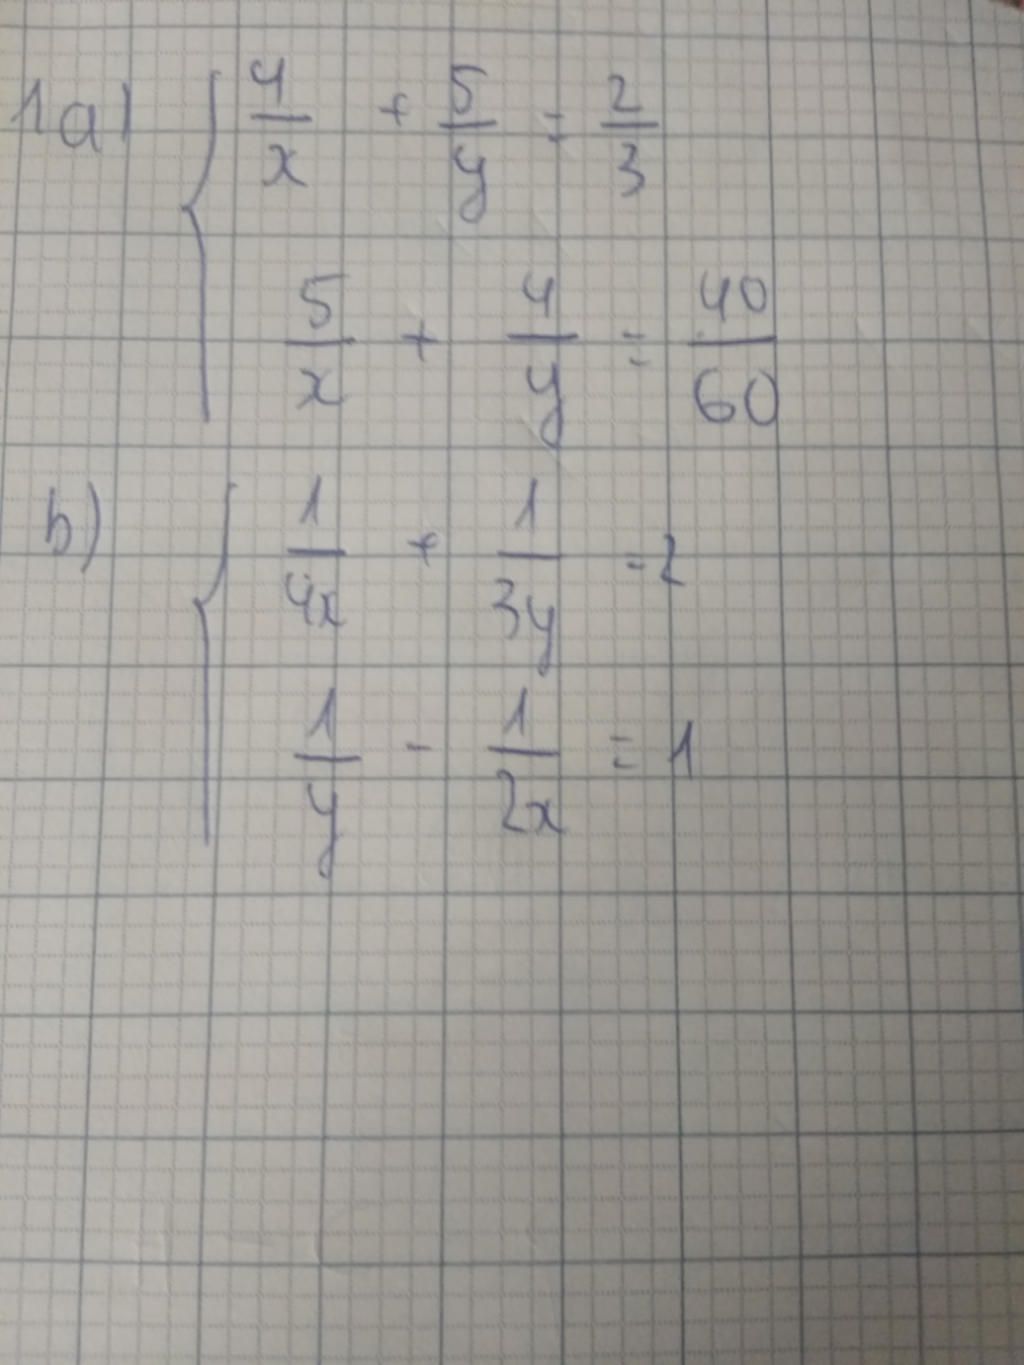 1a) { 4/x + 5/y = 2/3
5/x + 4/y = 40/60
b) { 1/4x + 1/3y = 2
1/y - 1/2x = 1